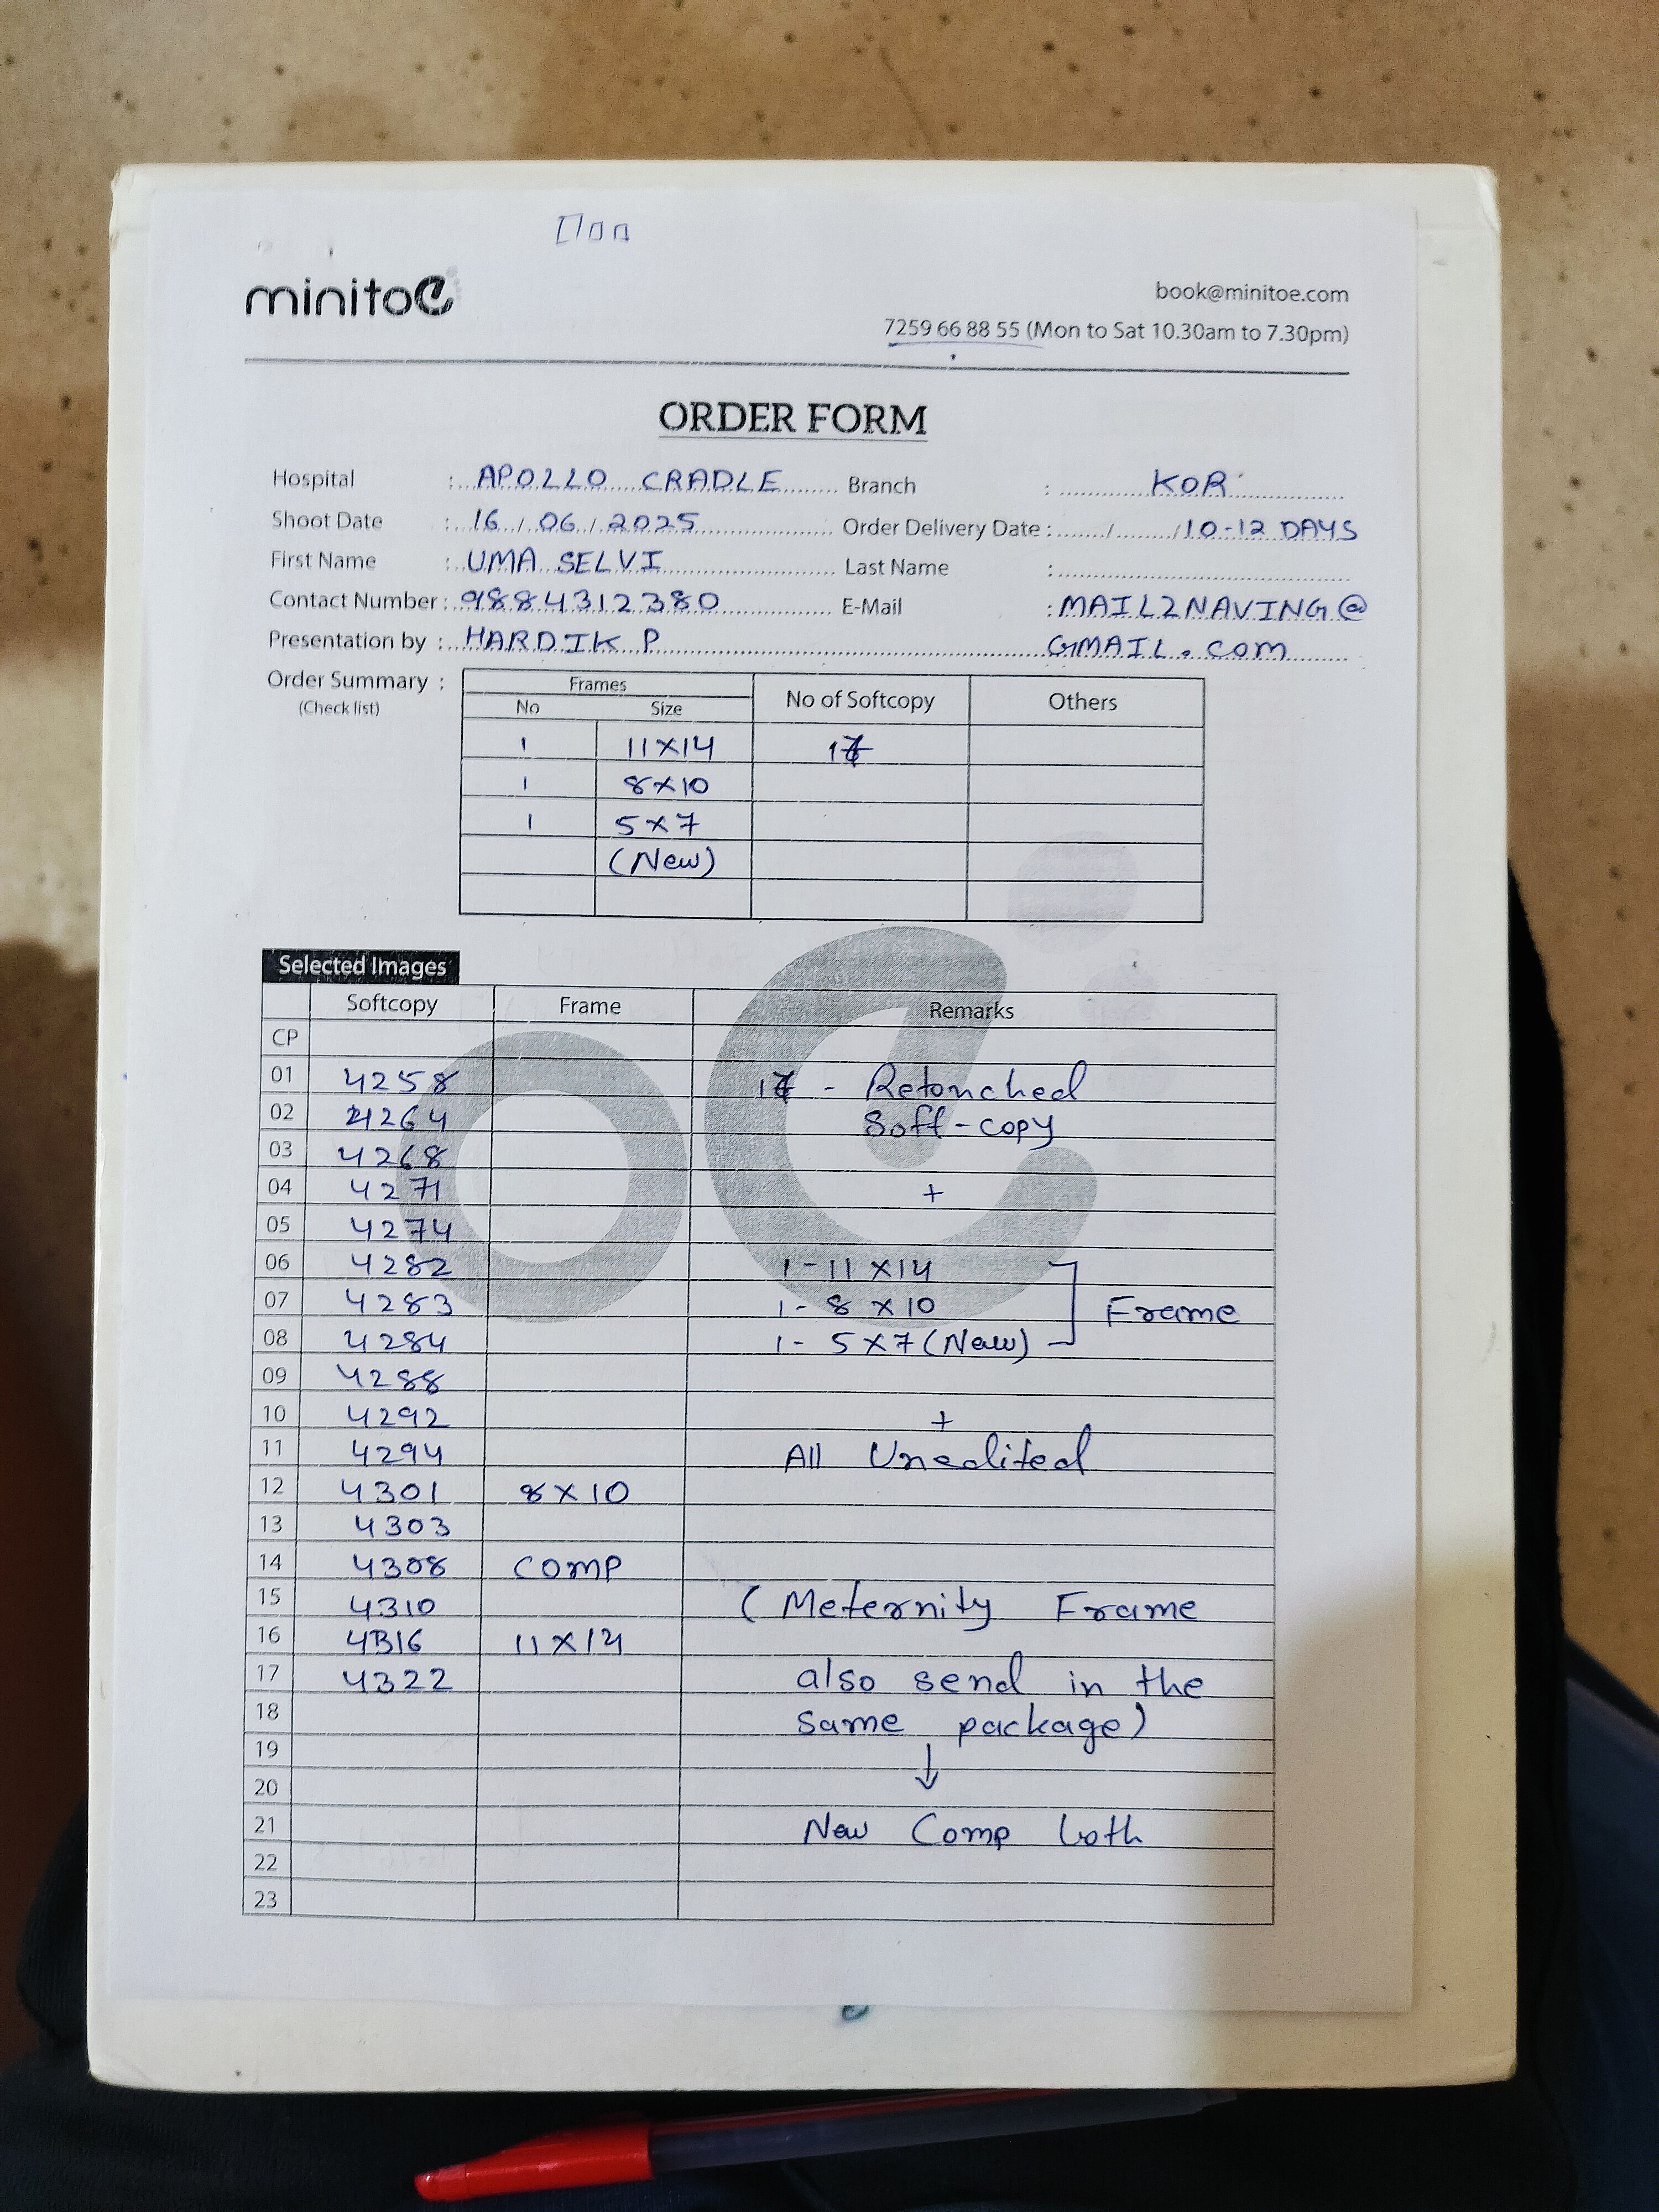 minitoe
book@minitoe.com
7259 66 88 55 (Mon to Sat 10.30am to 7.30pm)
ORDER FORM
Hospital : APOLLO CRADLE Branch : KOR
Shoot Date : 16 / 06 / 2025 Order Delivery Date : / / 10-12 DAYS
First Name : UMA SELVI Last Name :
Contact Number : 9884312380 E-Mail : MAIL2NAVING@
Presentation by : HARDIK P GMAIL.COM
Order Summary : Frames No of Softcopy Others
(Check list) No Size
1 11X14 17
1 8X10
1 5X7
(New)
Selected Images
Softcopy Frame Remarks
CP
01 4258 17 - Retouched
02 4264 Soft-copy
03 4268
04 4271 +
05 4274
06 4282 1-11X14
07 4283 1-8X10 Frame
08 4284 1-5X7(New)
09 4288
10 4292 +
11 4294 All Unedited
12 4301 8X10
13 4303
14 4308 COMP
15 4310 (Meternity Frame
16 4316 11X14
17 4322 also send in the
18 same package)
19 ↓
20
21 New Comp both
22
23